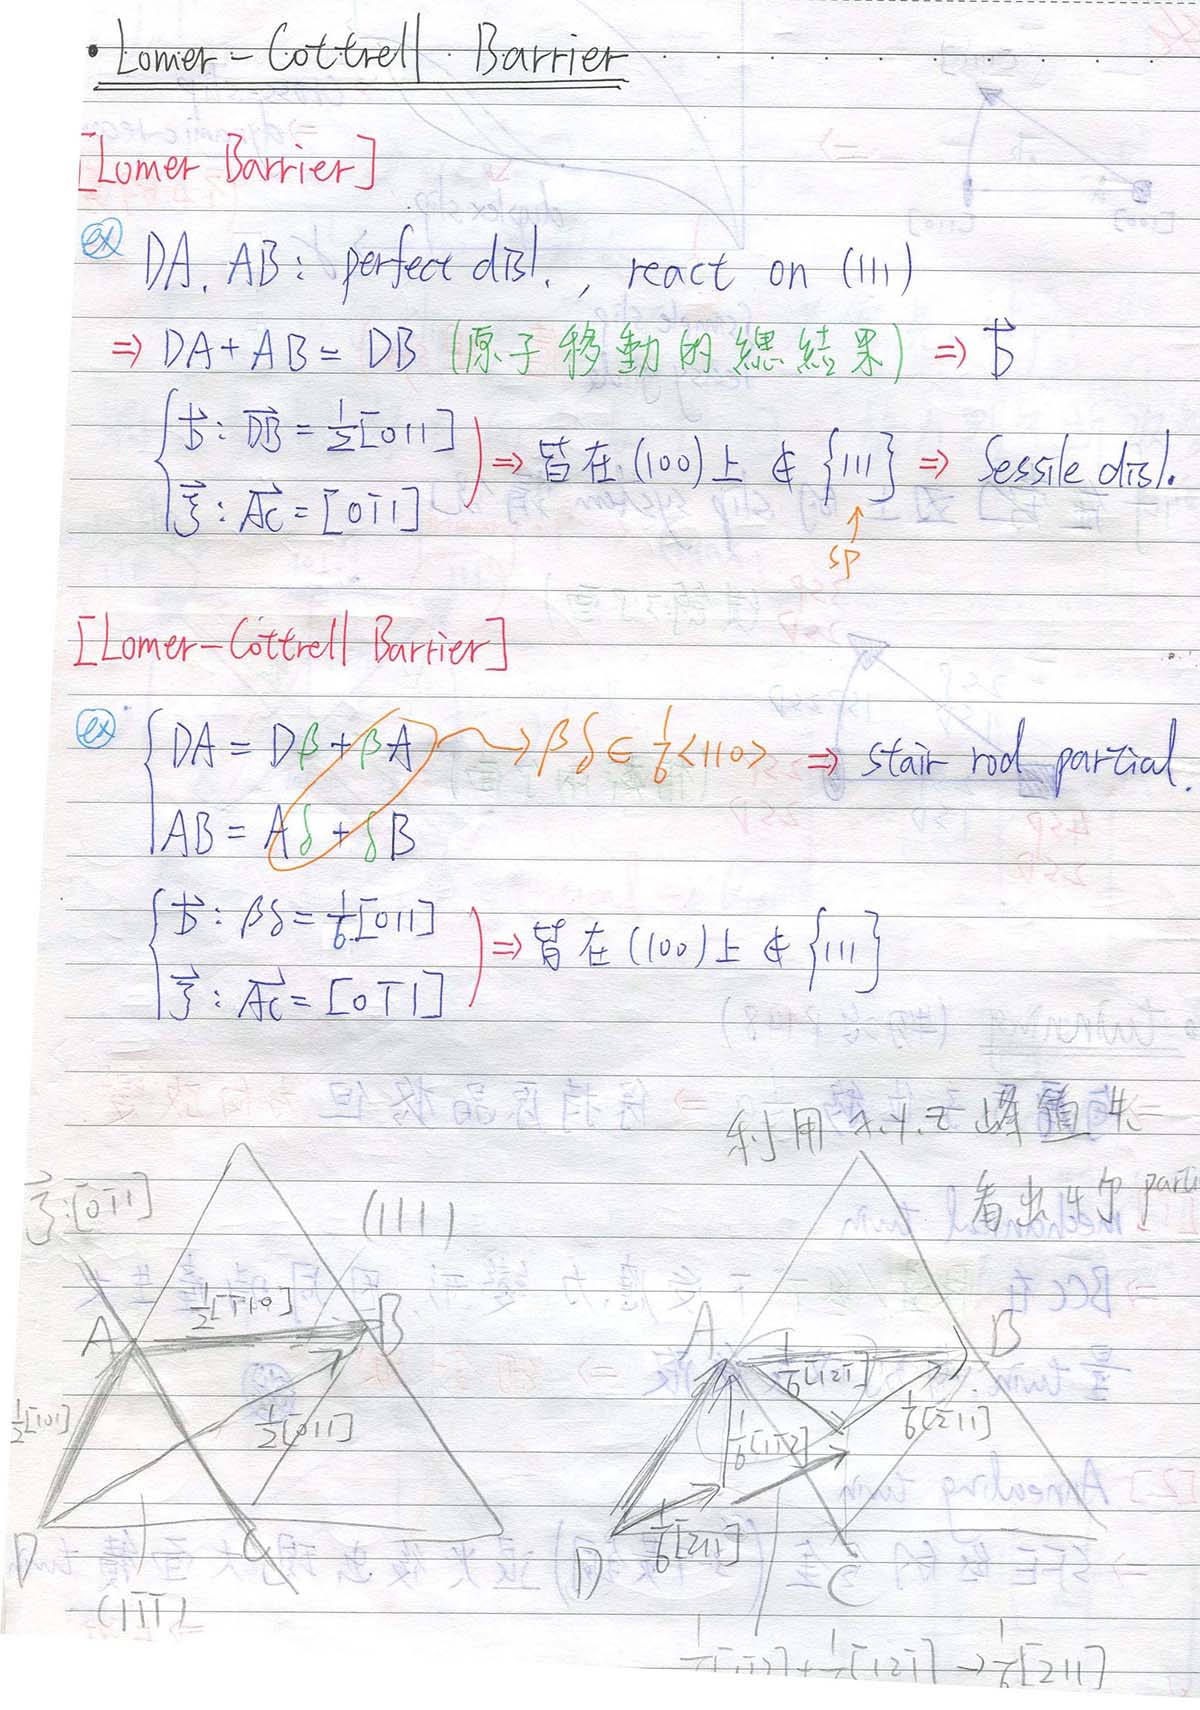 • Lomer-Cottrell Barrier
[Lomer Barrier]
ex DA. AB: perfect disl., react on (111)
⇒ DA + AB = DB (原子移動的總結果) ⇒ b⃗
b⃗: DB⃗ = 1/2[011]
ξ⃗: AC⃗ = [01̄1]
⇒ 皆在(100)上 ∉ {111} ⇒ Sessile disl.
↑
SP
[Lomer-Cottrell Barrier]
ex DA = Dβ + βA → βδ ⊂ 1/6<110> ⇒ stair rod partial.
AB = Aδ + δB
b⃗: βδ = 1/6[011]
ξ⃗: AC⃗ = [01̄1]
⇒ 皆在(100)上 ∉ {111}
利用 x.y.z
看出
ξ⃗:[01̄1]
(111)
A
1/2[1̄10]
B
1/2[101]
1/2[011]
D
C
(11̄1̄)
A
B
1/6[1̄21̄]
1/6[1̄12]
1/6[211]
D
C